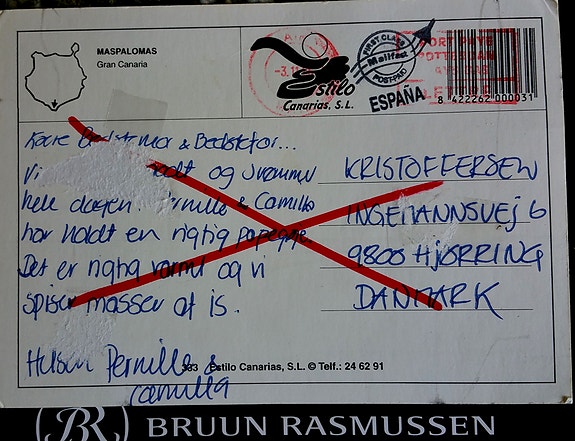 MASPALOMAS
Gran Canaria
Estilo
Canarias, S.L.
FIRST CLASS
Mailfast
POSTPAID
ESPAÑA
PORT PAYE
8 422262 000031
Kære Bedstemor & Bedstefar...
Vi og svømmer
hele dagen. Pernille & Camilla
har holdt en rigtig papegøje.
Det er rigtig varmt og vi
spiser masser af is.
Hilsen Pernille &
Camilla
KRISTOFFERSEN
INGEMANNSVEJ 6
9800 HJØRRING
DANMARK
383 Estilo Canarias, S.L. © Telf.: 24 62 91
BR BRUUN RASMUSSEN